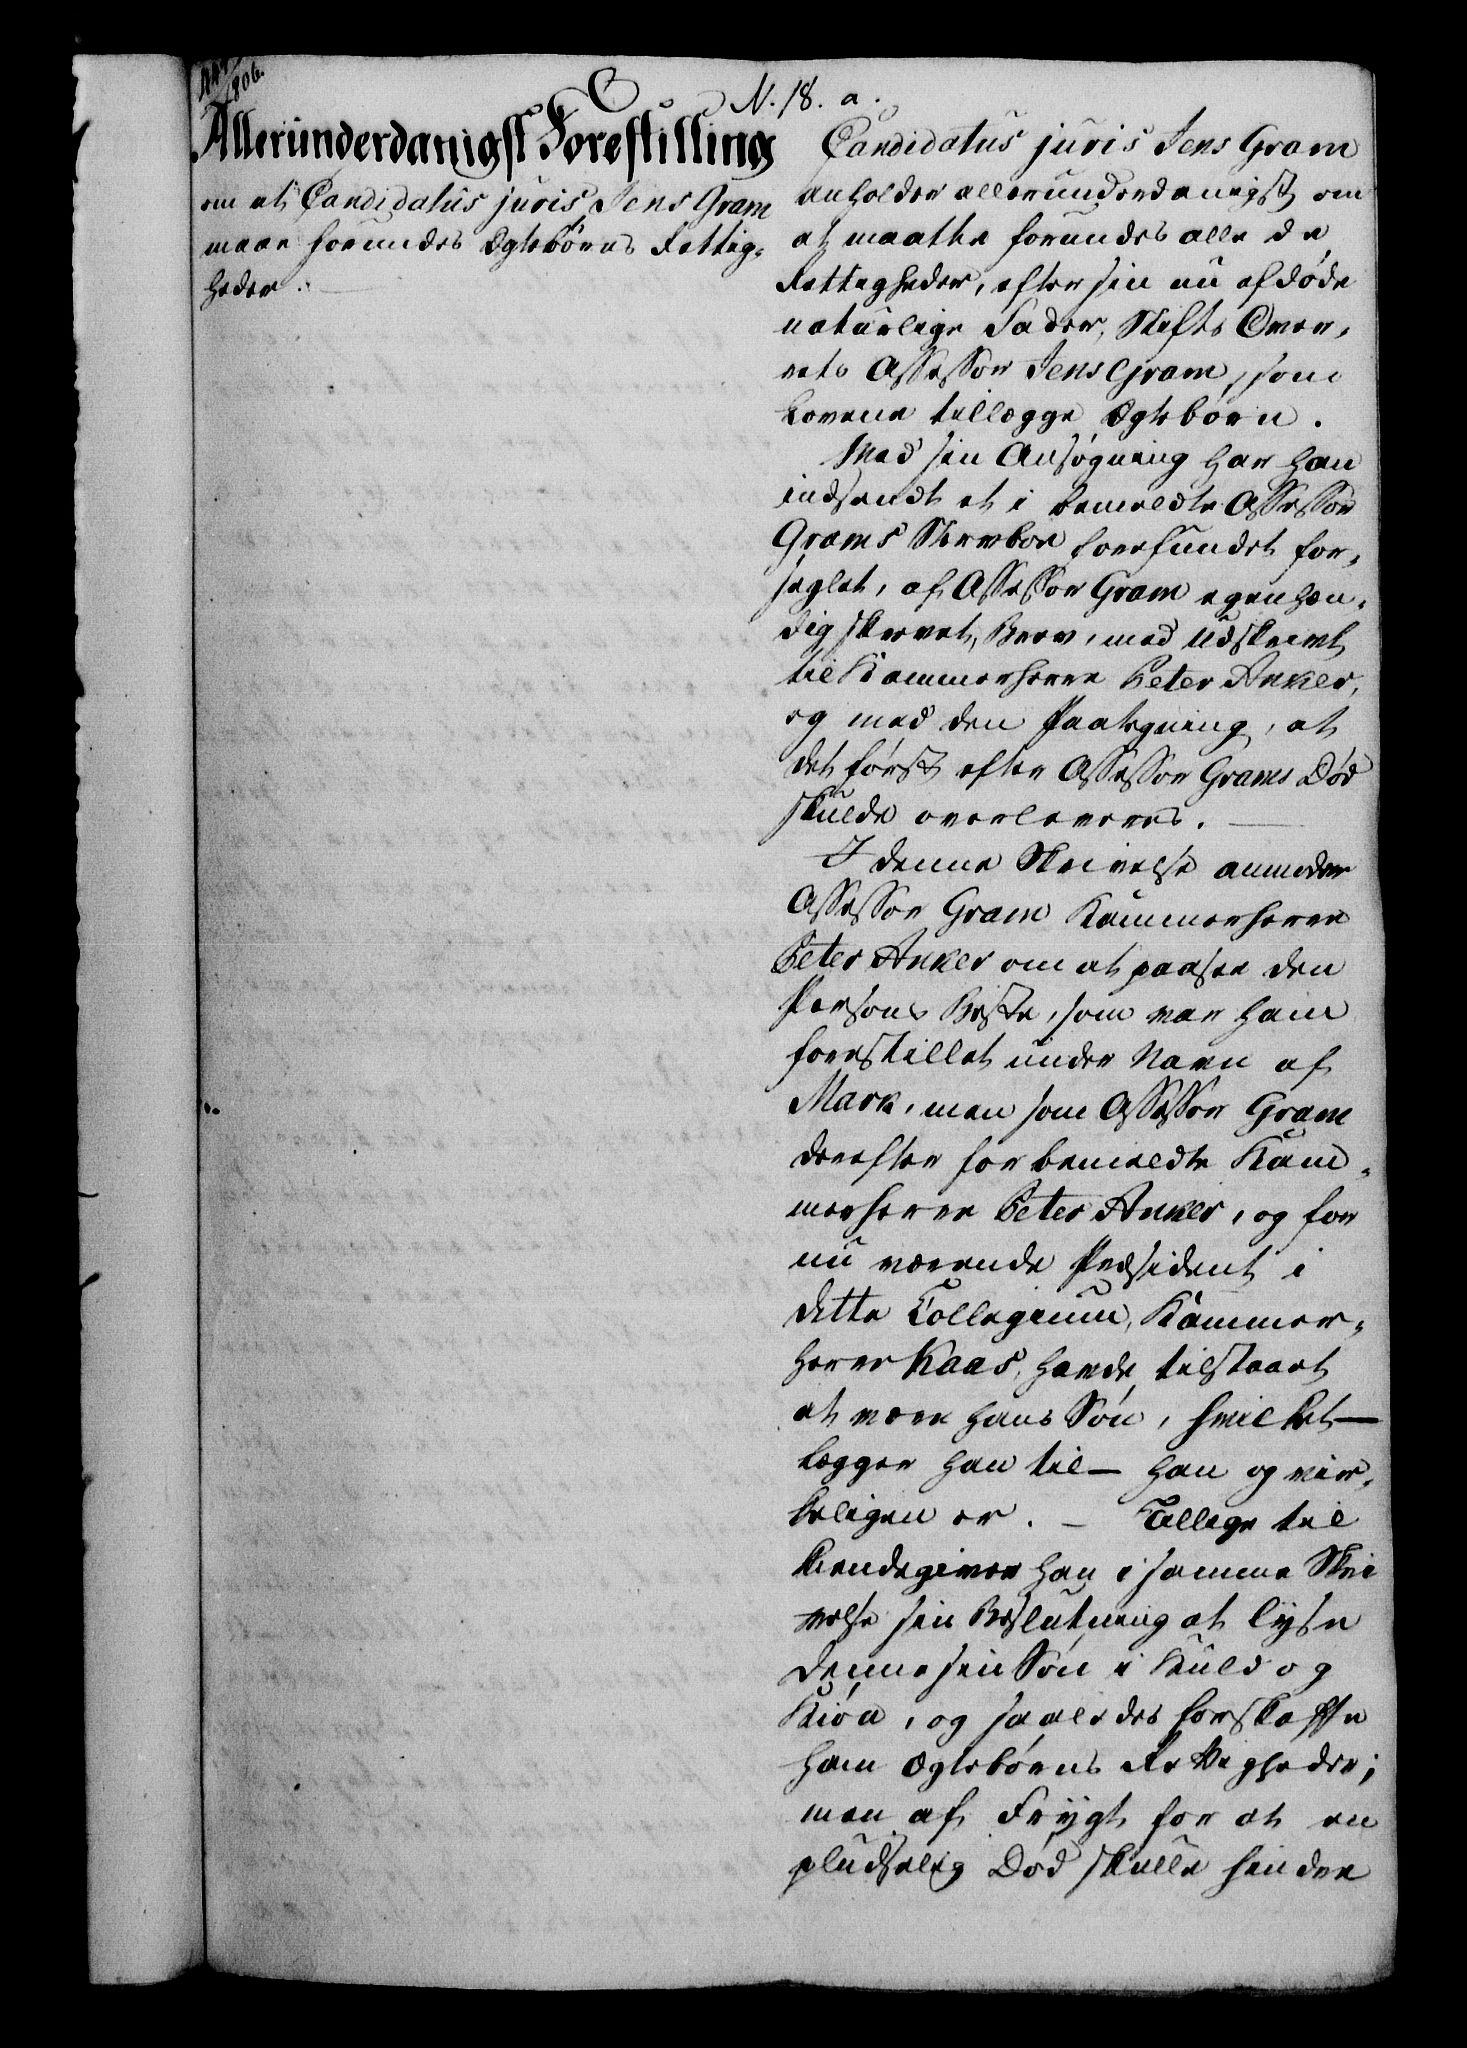 1806.
N. 18. a.
Allerunderdanigst Forestilling
om at Candidatus juris Jens Gram
maae forundes Ægtebörns Rettig-
heder.
Candidatus juris Jens Gram
anholder allerunderdanigst om
at maatte forundes alle de
Rettigheder, efter sin nu afdöde
naturlige Fader, Stifts Over-
rets Assessor Jens Gram, som
Lovene tillægge Ægtebörn.
Med sin Ansøgning har han
indsendt et i bemeldte Assessor
Grams Stervboe forefundet for-
seglet, af Assessor Gram egenhæn-
dig skrevet, Brev, med Udskrivt
til Kammerherre Peter Anker,
og med den Paategning, at
det först efter Assessor Grams Död
skulde overleveres.
I denne Skrivelse anmoder
Assessor Gram Kammerherre
Peter Anker om at paasee den
Persons Beste, som var ham
forestillet under Navn af
Mark, men som Assessor Gram
derefter for bemeldte Kam-
merherre Peter Anker, og for
nu værende Præsident i
dette Collegium, Kammer-
herre Kaas, havde tilstaaet
at være hans Sön, hvilket —
lægger han til — han og vir-
keligen er. — Tillige til
kiendegiver han i samme Skri
velse sin Beslutning at lyse
denne sin Sön i Kuld og
Kiön, og saaledes forskaffe
ham Ægtebörns Rettigheder;
men af Frygt for at en
pludselig Död skulle hindre